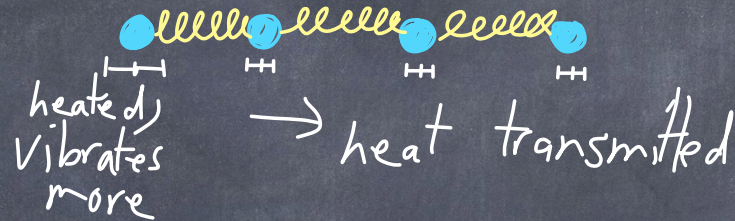 heated,
vibrates
more
→ heat transmitted